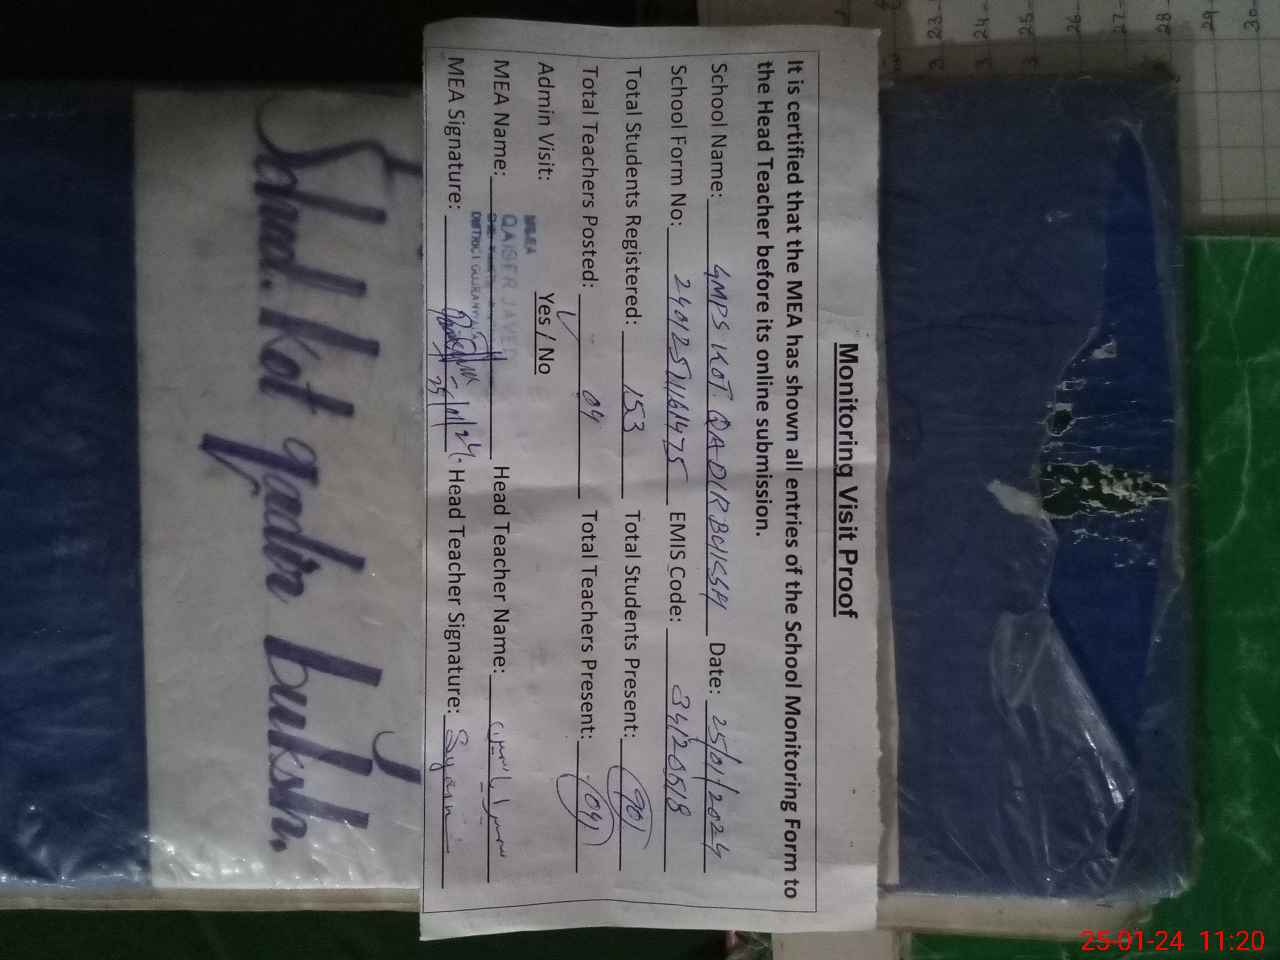 Monitoring Visit Proof
It is certified that the MEA has shown all entries of the School Monitoring Form to
the Head Teacher before its online submission.
School Name: GMPS KOT QADIR BUKSH Date: 25/01/2024
School Form No: EMIS Code: 34120518
Total Students Registered: 153 Total Students Present: 90
Total Teachers Posted: 04 Total Teachers Present: 04
Admin Visit: Yes / No
MEA Name: Head Teacher Name:
MEA Signature: Head Teacher Signature:
M&EA
QAISER JAVED
DISTRICT GUJRANWALA
Kot qadir buksh.
23
24
25
26
27
28
29
30
25-01-24 11:20